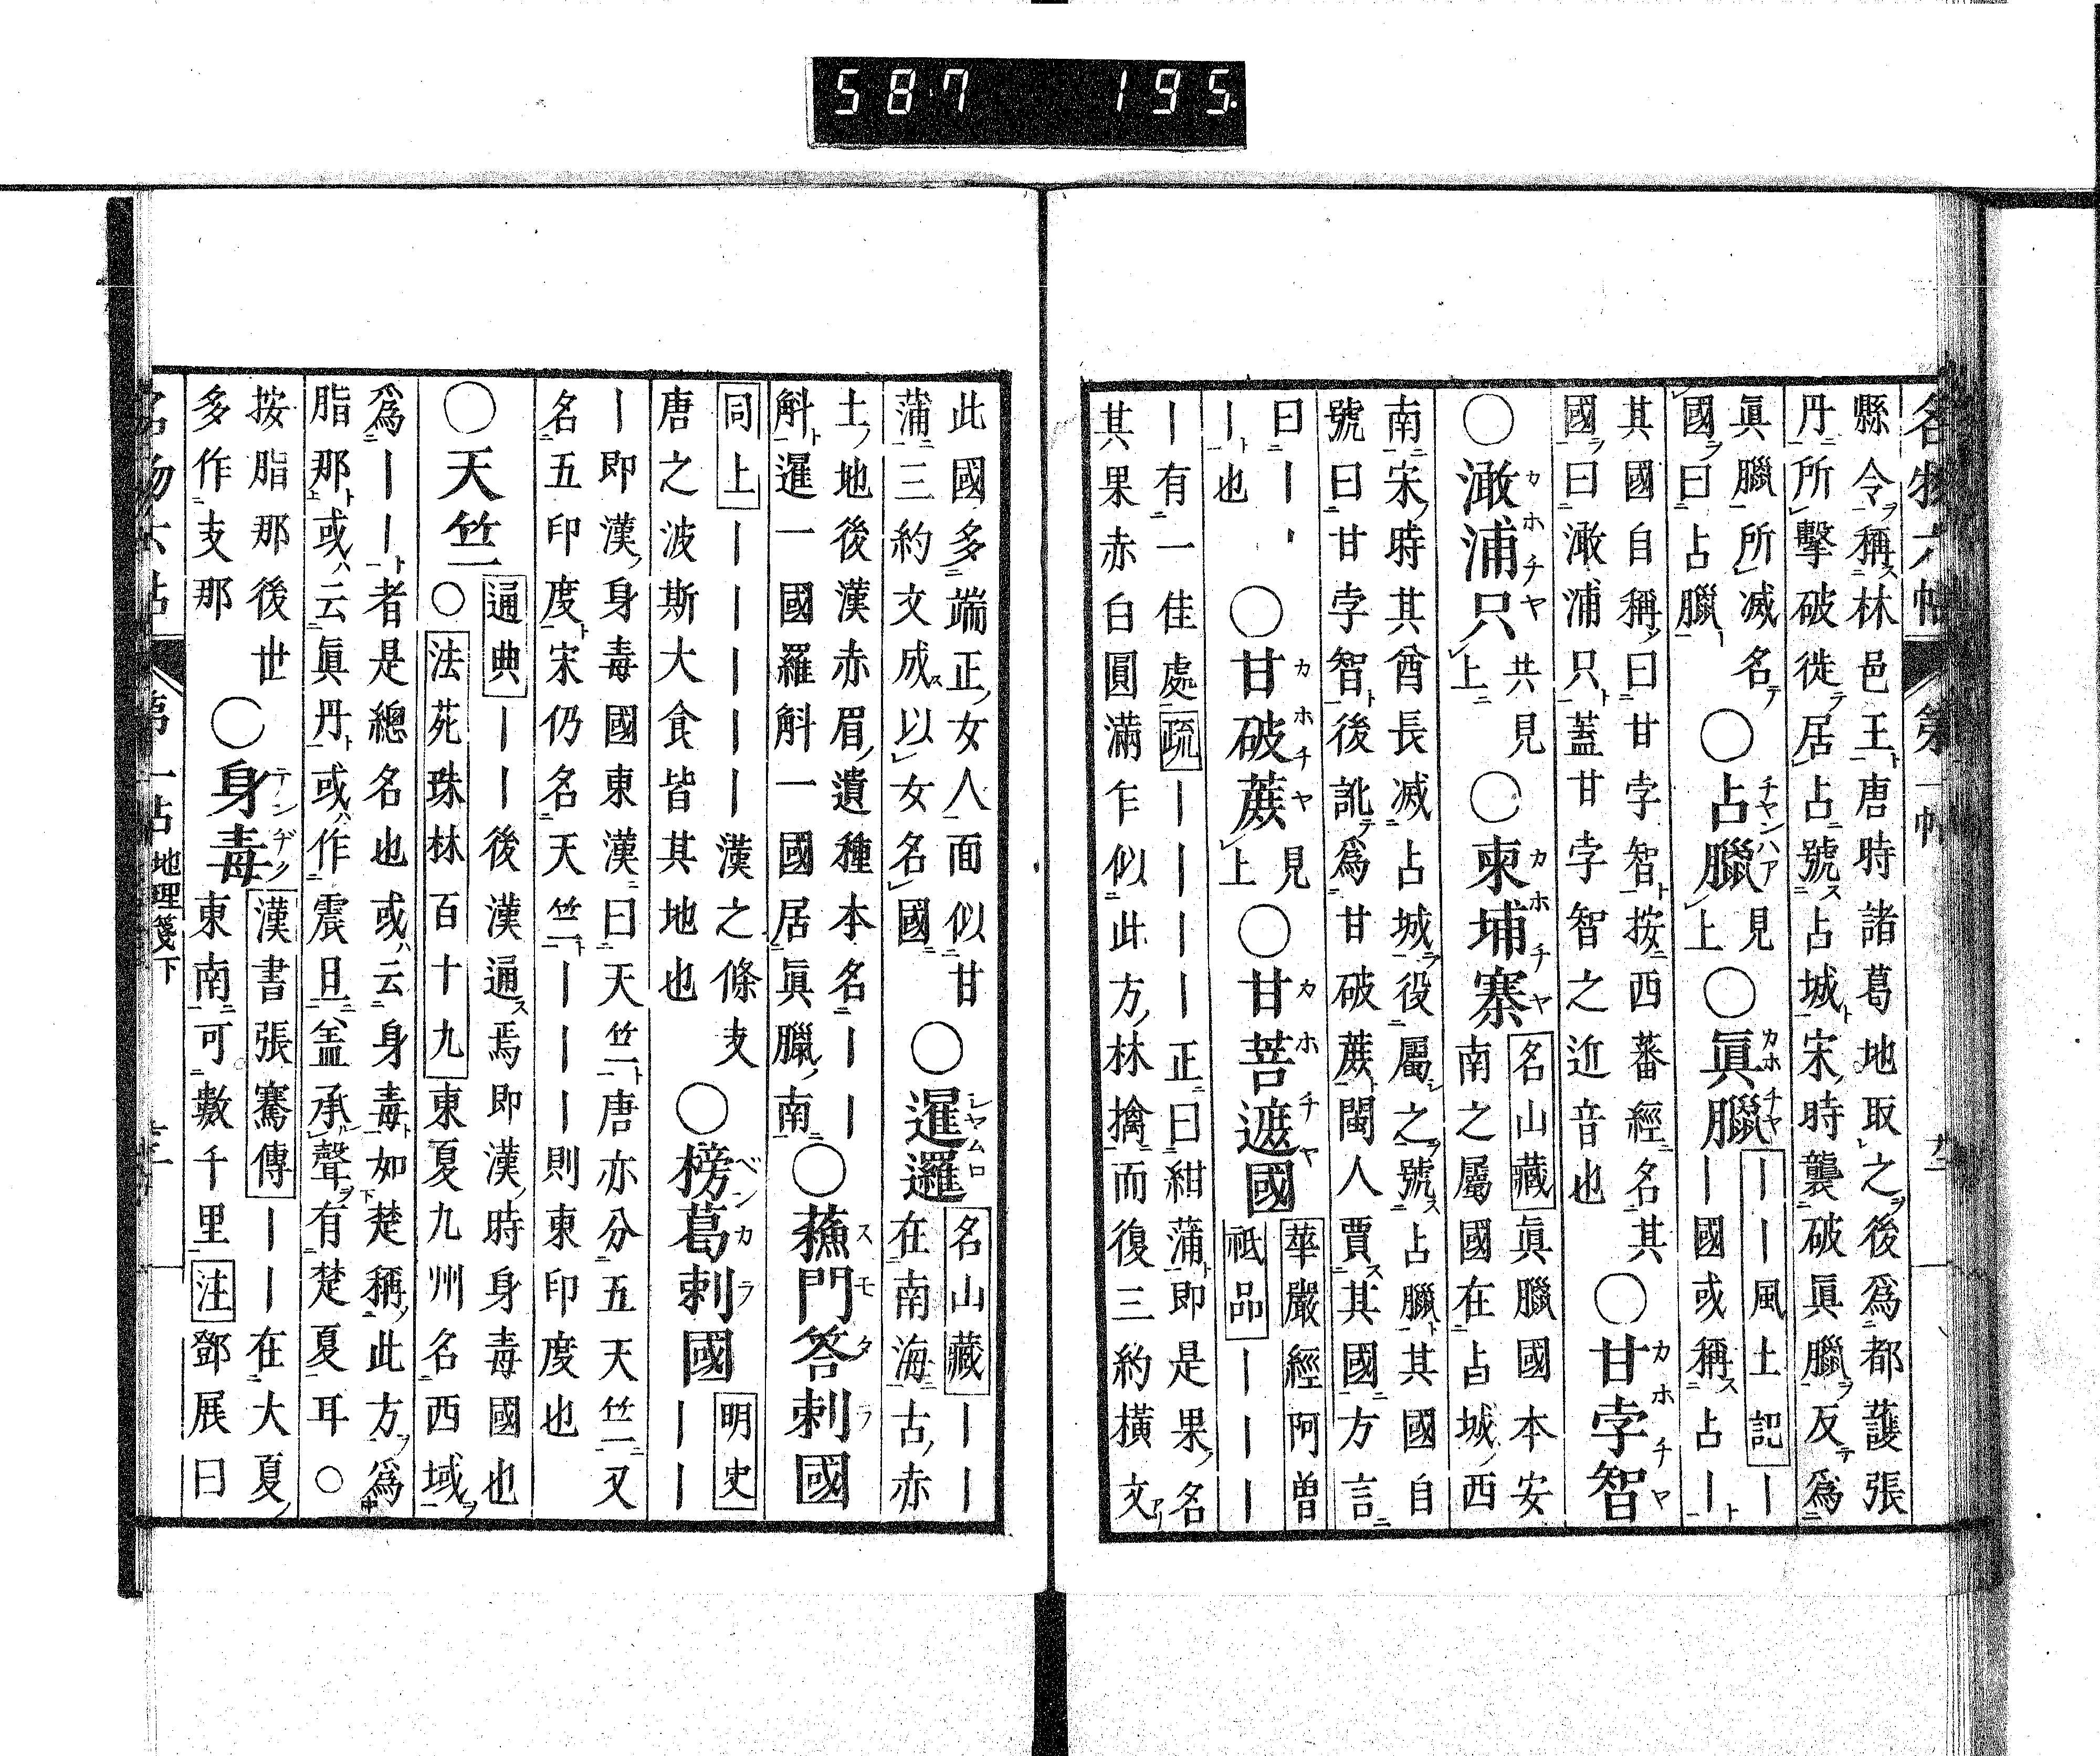 587 195
名物六帖 第一帖
縣令稱林邑王唐時諸葛地取之後爲都護張
丹所擊破徙居占號占城宋時襲破眞臘反爲
眞臘所滅名
國曰占臘
○占臘 チヤンハア
見上
○眞臘 カホチヤ
｜｜風土記｜
｜國或稱占｜
其國自稱曰甘孛智按西蕃經名其
國曰澉浦只蓋甘孛智之近音也
○甘孛智 カホチヤ
○澉浦只 カホチヤ
共見上
○柬埔寨 カホチヤ
名山藏眞臘國本安
南之屬國在占城西
南宋時其酋長滅占城役屬之號占臘其國自
號曰甘孛智後訛爲甘破蔗閩人賈其國方言
曰｜、
｜也
○甘破蔗 カホチヤ
見上
○甘菩遮國 カホチヤ
華嚴經阿曽
祗品｜｜｜
｜有一佳處疏｜｜｜｜正曰紺蒲即是果名
其果赤白圓滿乍似此方林擒而復三約橫文
此國多端正女人面似甘
蒲三約文成以女名國
○暹邏 シヤムロ
名山藏｜｜
在南海古赤
土地後漢赤眉遺種本名｜｜
斛暹一國羅斛一國居眞臘南
○蘓門答剌國 スモタラ
同上｜｜｜｜｜漢之條支
唐之波斯大食皆其地也
○榜葛剌國 ベンカラ
明史
｜｜
｜即漢身毒國東漢曰天竺唐亦分五天竺又
名五印度宋仍名天竺｜｜｜則東印度也
○天竺
通典｜｜後漢通焉即漢時身毒國也
○法苑珠林百十九東夏九州名西域
爲｜｜者是總名也或云身毒如楚稱此方爲
脂那或云眞丹或作震旦盖承聲有楚夏耳○
按脂那後世
多作支那
○身毒 テンヂク
漢書張騫傳｜｜在大夏
東南可數千里注鄧展曰
名物六帖 第一帖 地理箋下